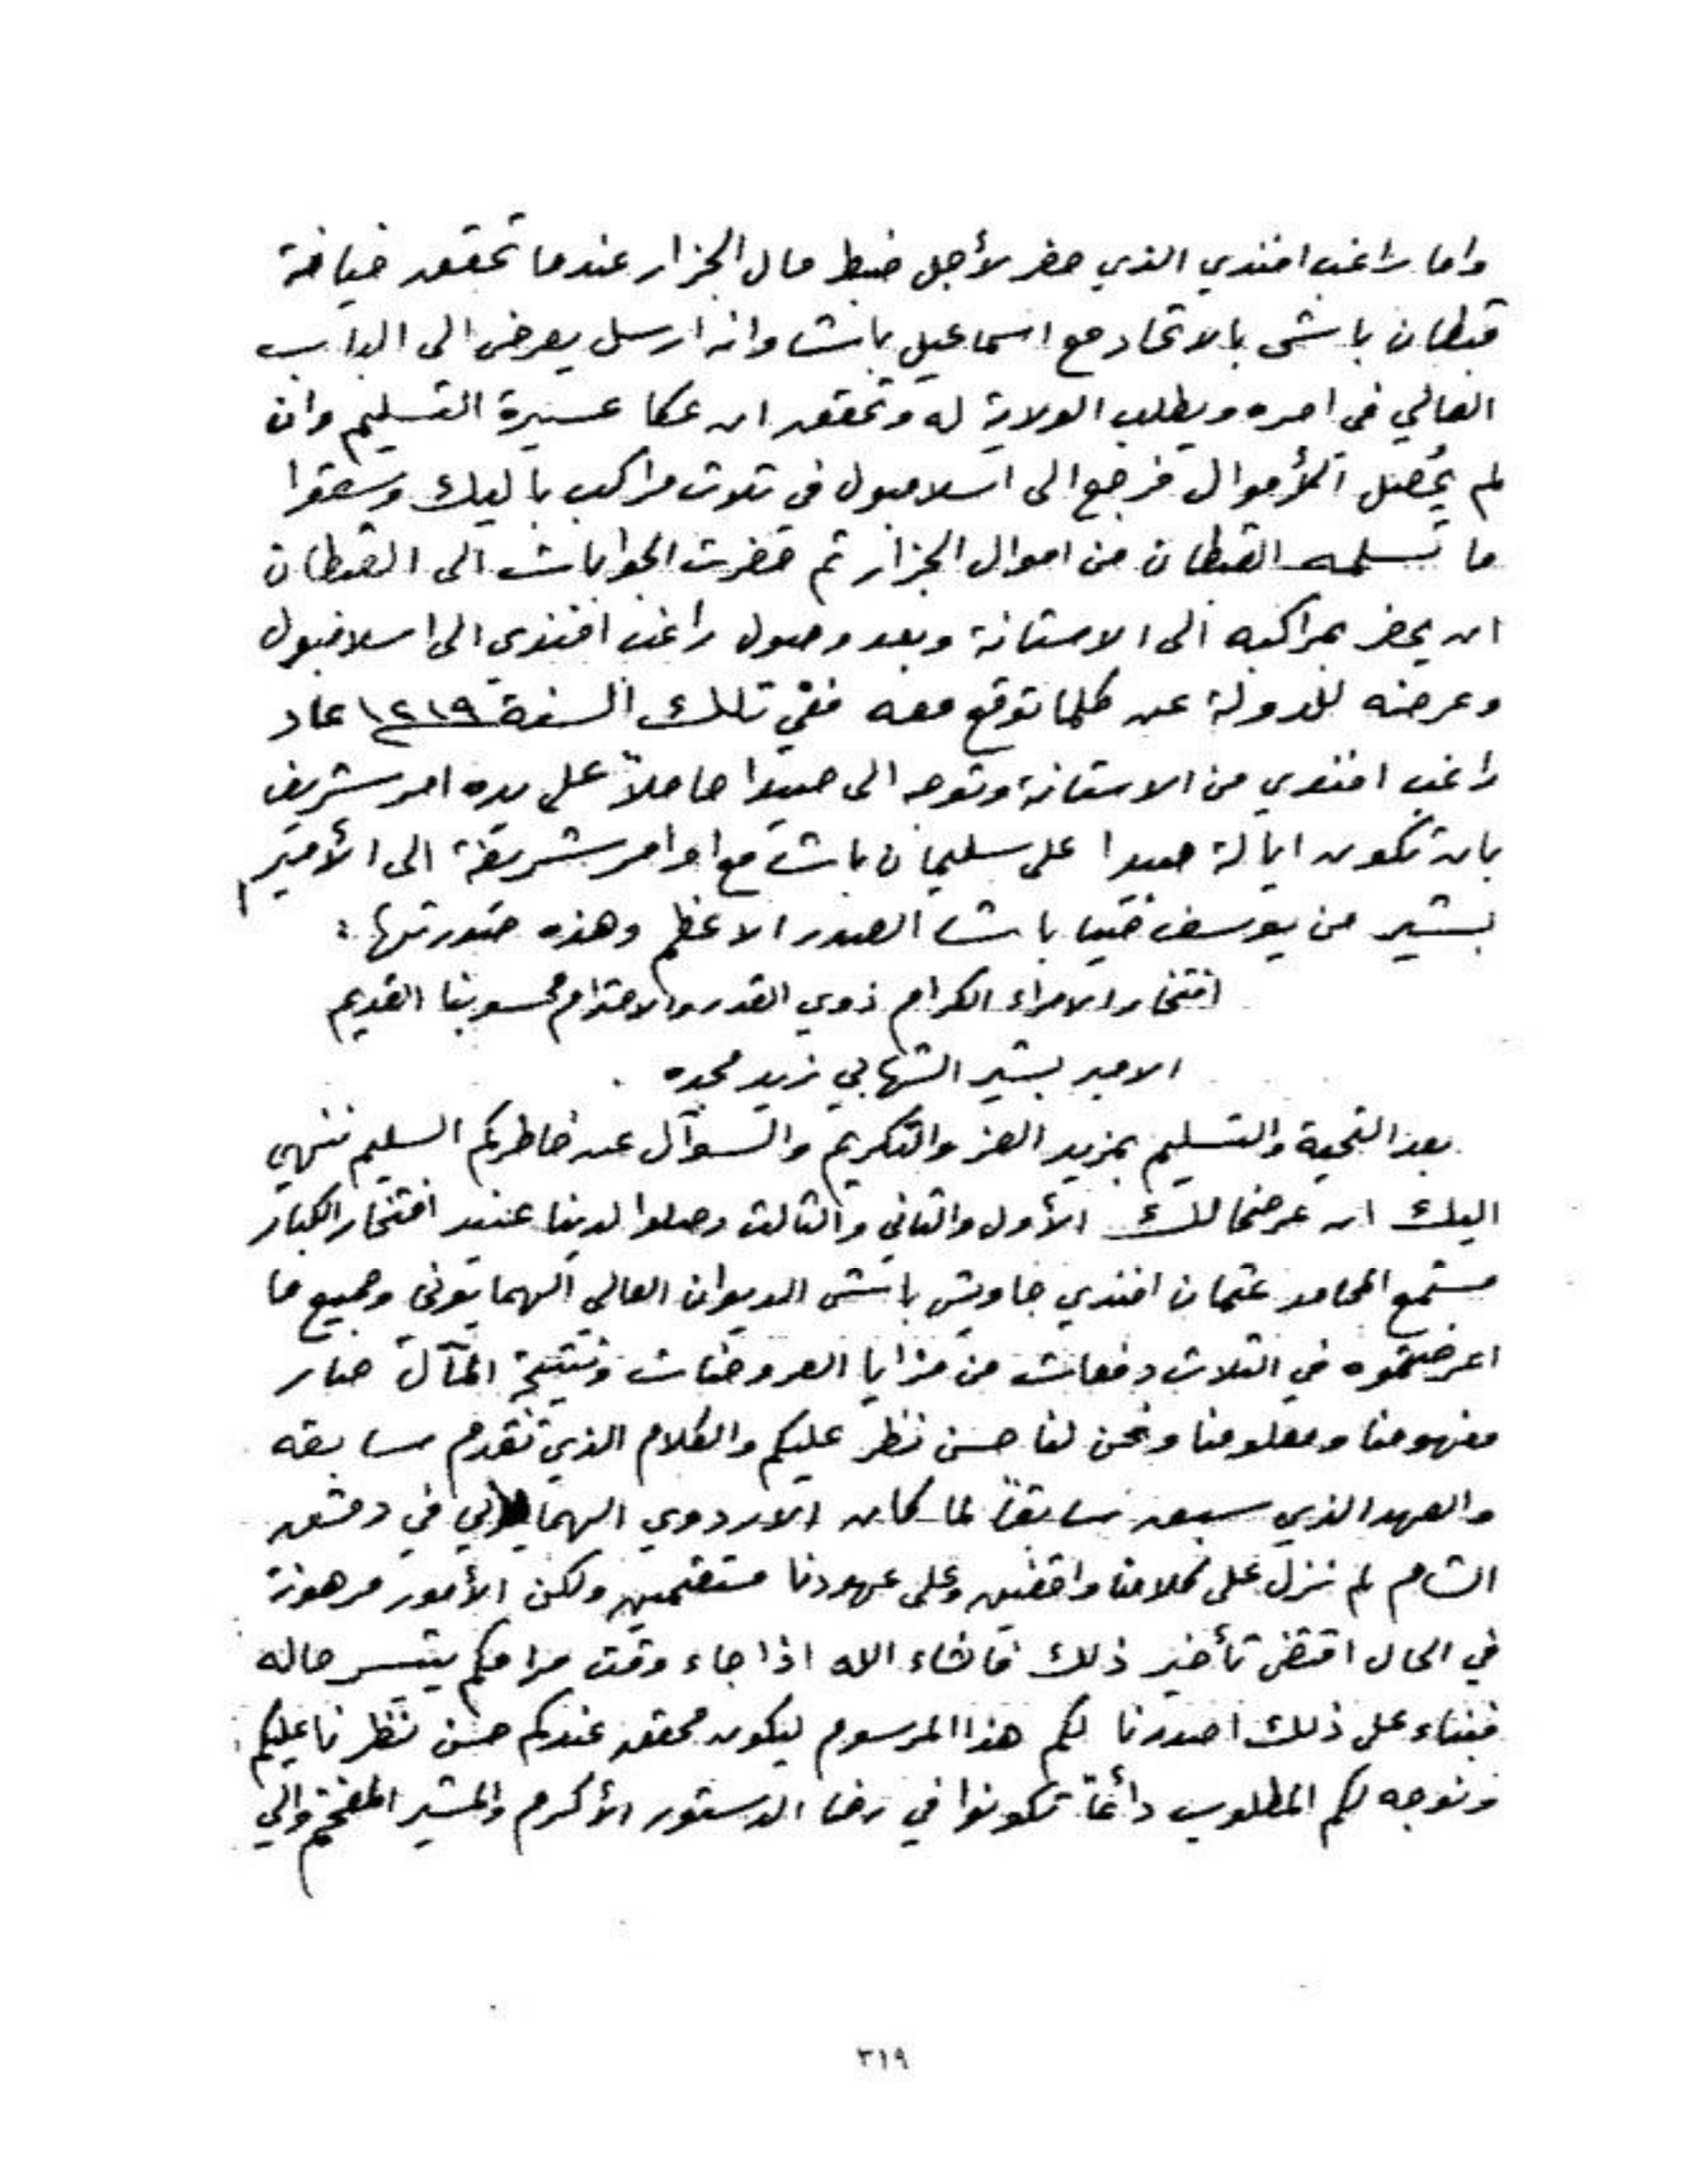 واما راغب افندي الذي حضر لأجل ضبط مال الجزار عندما تحقق خيانة
قبطان باشي بالاتحاد مع اسماعيل باشا وانه ارسل يعرض الى الباب
العالي في امره ويطلب الولاية له وتحقق ان عكا عسيرة التسليم وان
لم يحصل الأموال فرجع الى اسلامبول في ثلاث مراكب باليك وسعقوا
ما تسلمه القبطان من اموال الجزار ثم حضرت الجوابات الى القبطان
ان يحضر بمراكبه الى الاستانة وبعد وصول راغب افندي الى اسلامبول
وعرضه للدولة عن كلما توقع معه ففي تلك السنة ١٢١٩ عاد
راغب افندي من الاستانة وتوجه الى صيدا حاملاً على يده امر شريف
بان تكون ايالة صيدا على سليمان باشا مع اوامر شريفة الى الأمير
بشير من يوسف ضيا باشا الصدر الاعظم وهذه صورتها :
افتخار الامراء الكرام ذوي القدر والاحترام محسوبنا القديم
الامير بشير الشهابي زيد مجده
بعد التحية والتسليم بمزيد العز والتكريم والسوآل عن خاطركم السليم ننهي
اليك ان عرضحالك الأول والثاني والثالث وصلوا لدينا عند افتخار الكبار
مستجمع المحامد عثمان افندي جاويش باشي الديوان العالي الهمايوني وجميع ما
اعرضتموه في الثلاث دفعات من مزايا العروضات ونتيجة المآل صار
مفهومنا ومعلومنا ونحن لنا حسن نظر عليكم والكلام الذي تقدم سابقه
والعهد الذي سبق سابقاً لما كان الاردوي الهمايوني في دمشق
الشام لم نزل على كلامنا واقفين وعلى عهودنا مستقيمين ولكن الأمور مرهونة
في الحال اقتضى تأخير ذلك فانشاء الله اذا جاء وقت مرامكم يتيسر حاله
فبناء على ذلك اصدرنا لكم هذا المرسوم ليكون محقق عندكم حسن نظرنا عليكم
ونوجه لكم المطلوب دائماً تكونوا في رضا الدستور الأكرم والمشير المفخم والي
٣١٩